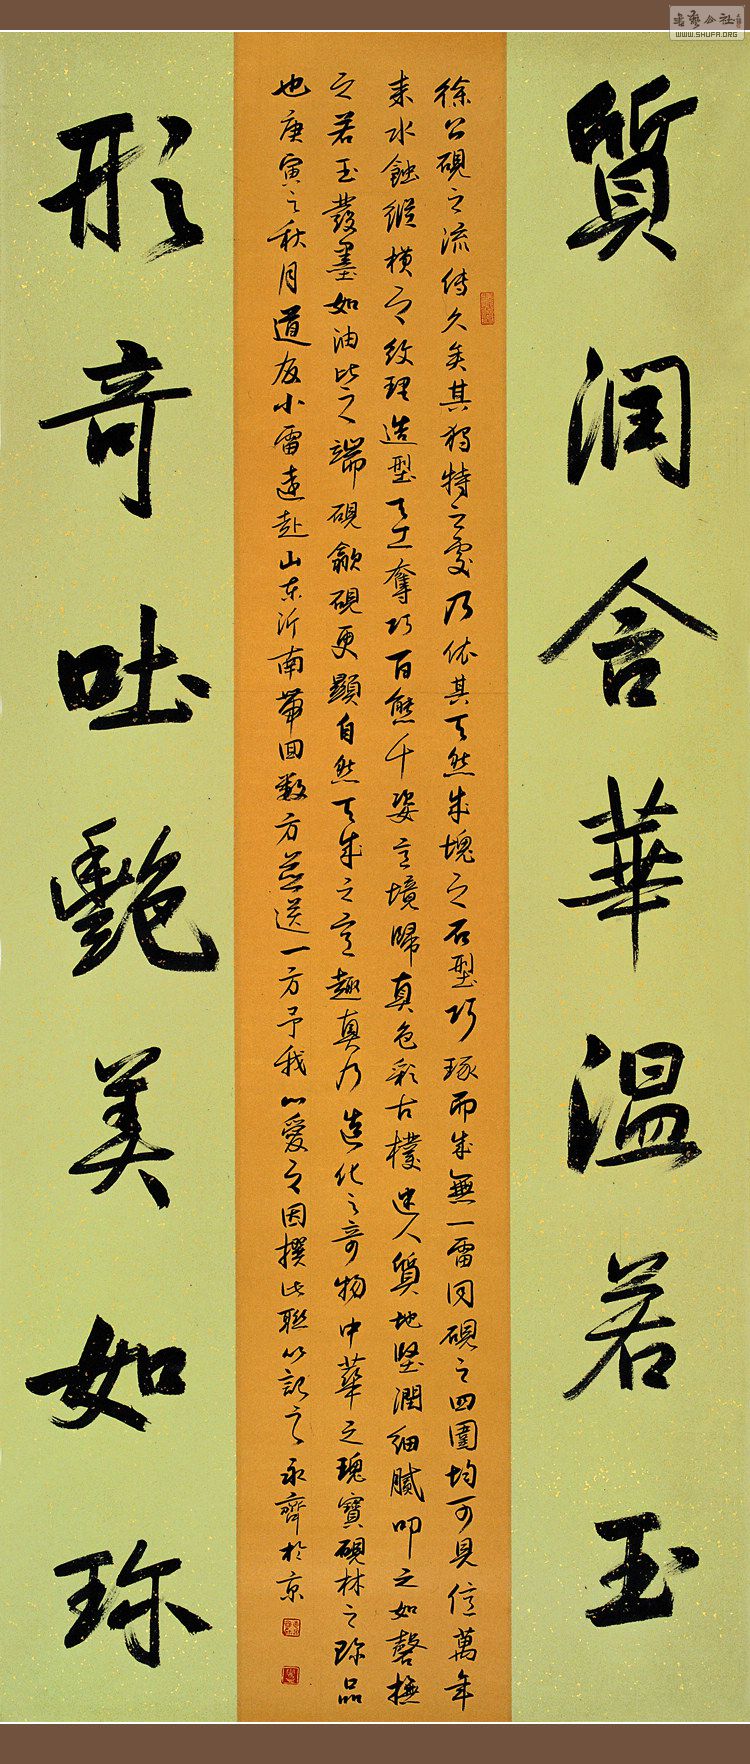 質潤含華温若玉
徐公硯之流傳久矣其獨特之處乃依其天然成塊之石型巧琢而成無一雷同硯之四圍均可見億萬年
来水蝕縱横之紋理造型天工奪巧百態千姿意境歸真色彩古樸迷人質地堅潤細膩叩之如磬撫
之若玉發墨如油比之端硯歙硯更顯自然天成之意趣真乃造化之奇物中華之瑰寶硯林之珍品
也庚寅之秋月道友小雷遠赴山東沂南带回数方並送一方予我心愛之因撰此联以記之永齊於京
形奇吐艷美如珍
WWW.SHUFA.ORG